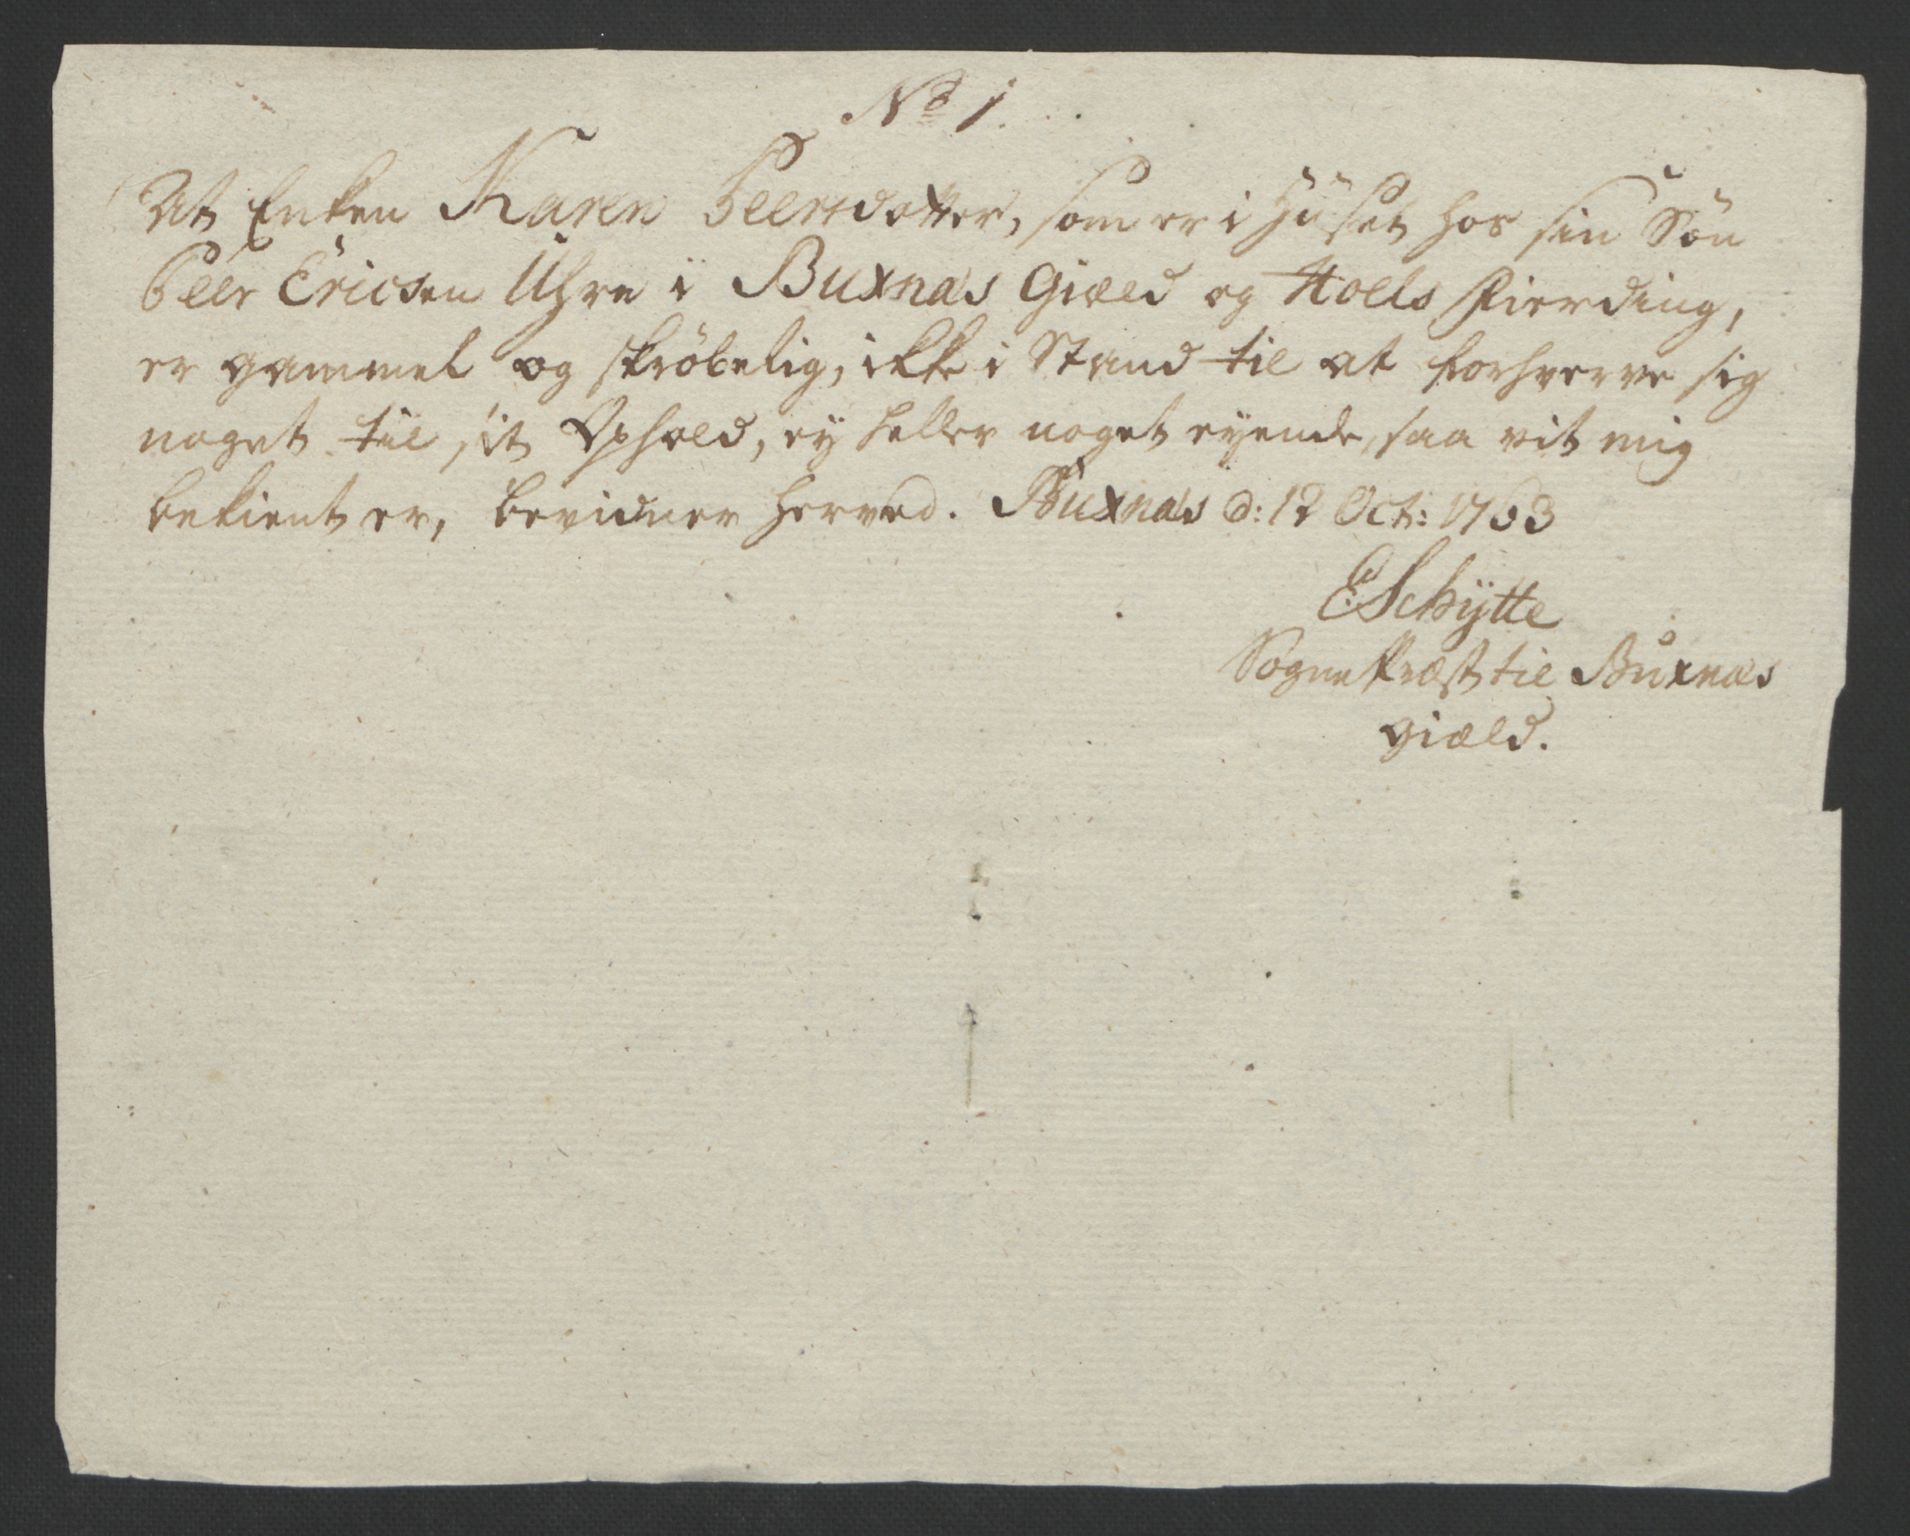 No 1.
At Enken Karen Peersdatter, som er i Huset hos sin Sön
Peer Ericsen Uhre i Buxnæs Giæld og Hols Fierding,
er gammel og skröbelig, ikke i Stand til at forhverve sig
noget til sit Ophold, ey heller noget eyende, saa vit mig
bekient er, bevidner herved. Buxnæs d: 12 Oct: 1763
ESchytte
Sogne Præst til Buxnæs
giæld.